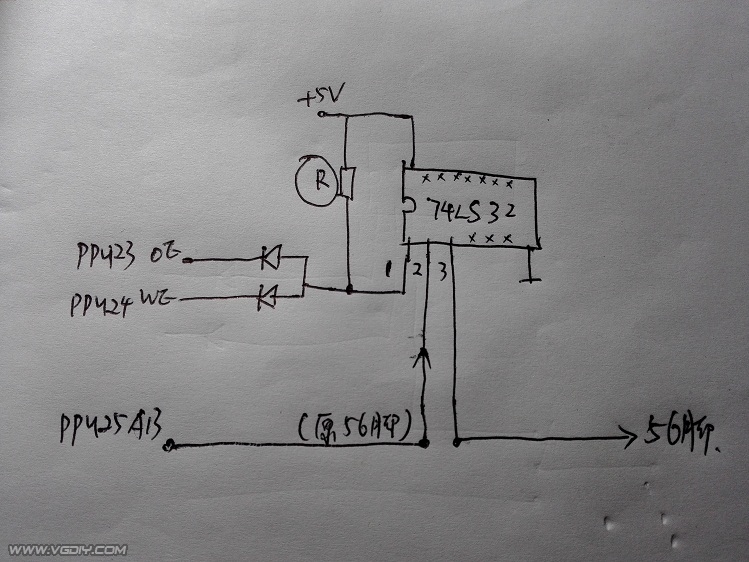 +5V
R
× × × × × × ×
74LS32
× × ×
PPU23 OE
1 2 3
PPU24 WE
PPU25 A13
(原56脚)
56脚.
WWW.VGDIY.COM